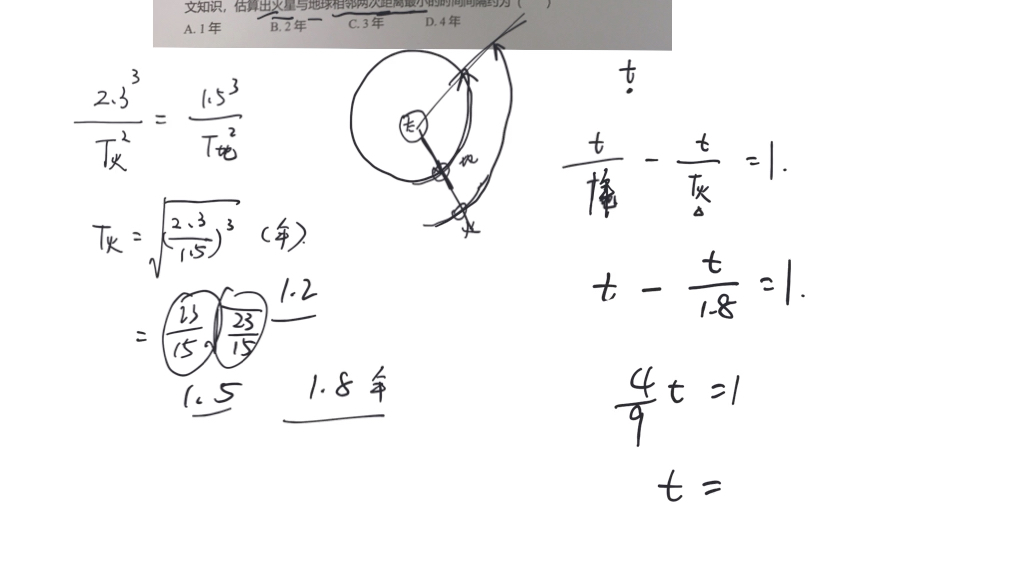 文知识，估算出火星与地球相邻两次距离最小的时间间隔约为（ ）
A. 1 年 B. 2 年 C. 3 年 D. 4 年
2.3³/T火² = 1.5³/T地²
T火 = √(2.3/1.5)³ (年).
= 23/15 √23/15 1.2
1.5 1.8 年
太
地
火
t
t/T地 - t/T火 = 1.
t - t/1.8 = 1.
4/9 t = 1
t =